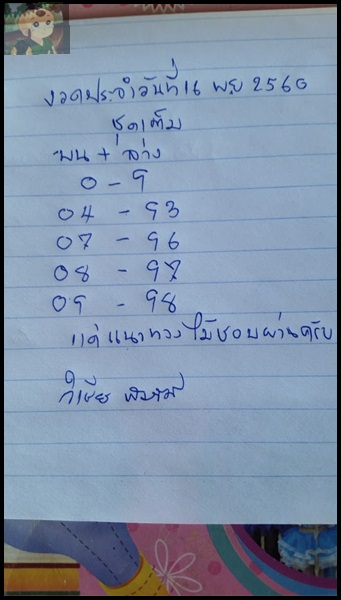 งวดประจำวันที่ 16 พย 2560
ชุดเต็ม
บน + ล่าง
0 - 9
04 - 93
07 - 96
08 - 97
09 - 98
แค่แนวทางไม่ชอบผ่านครับ